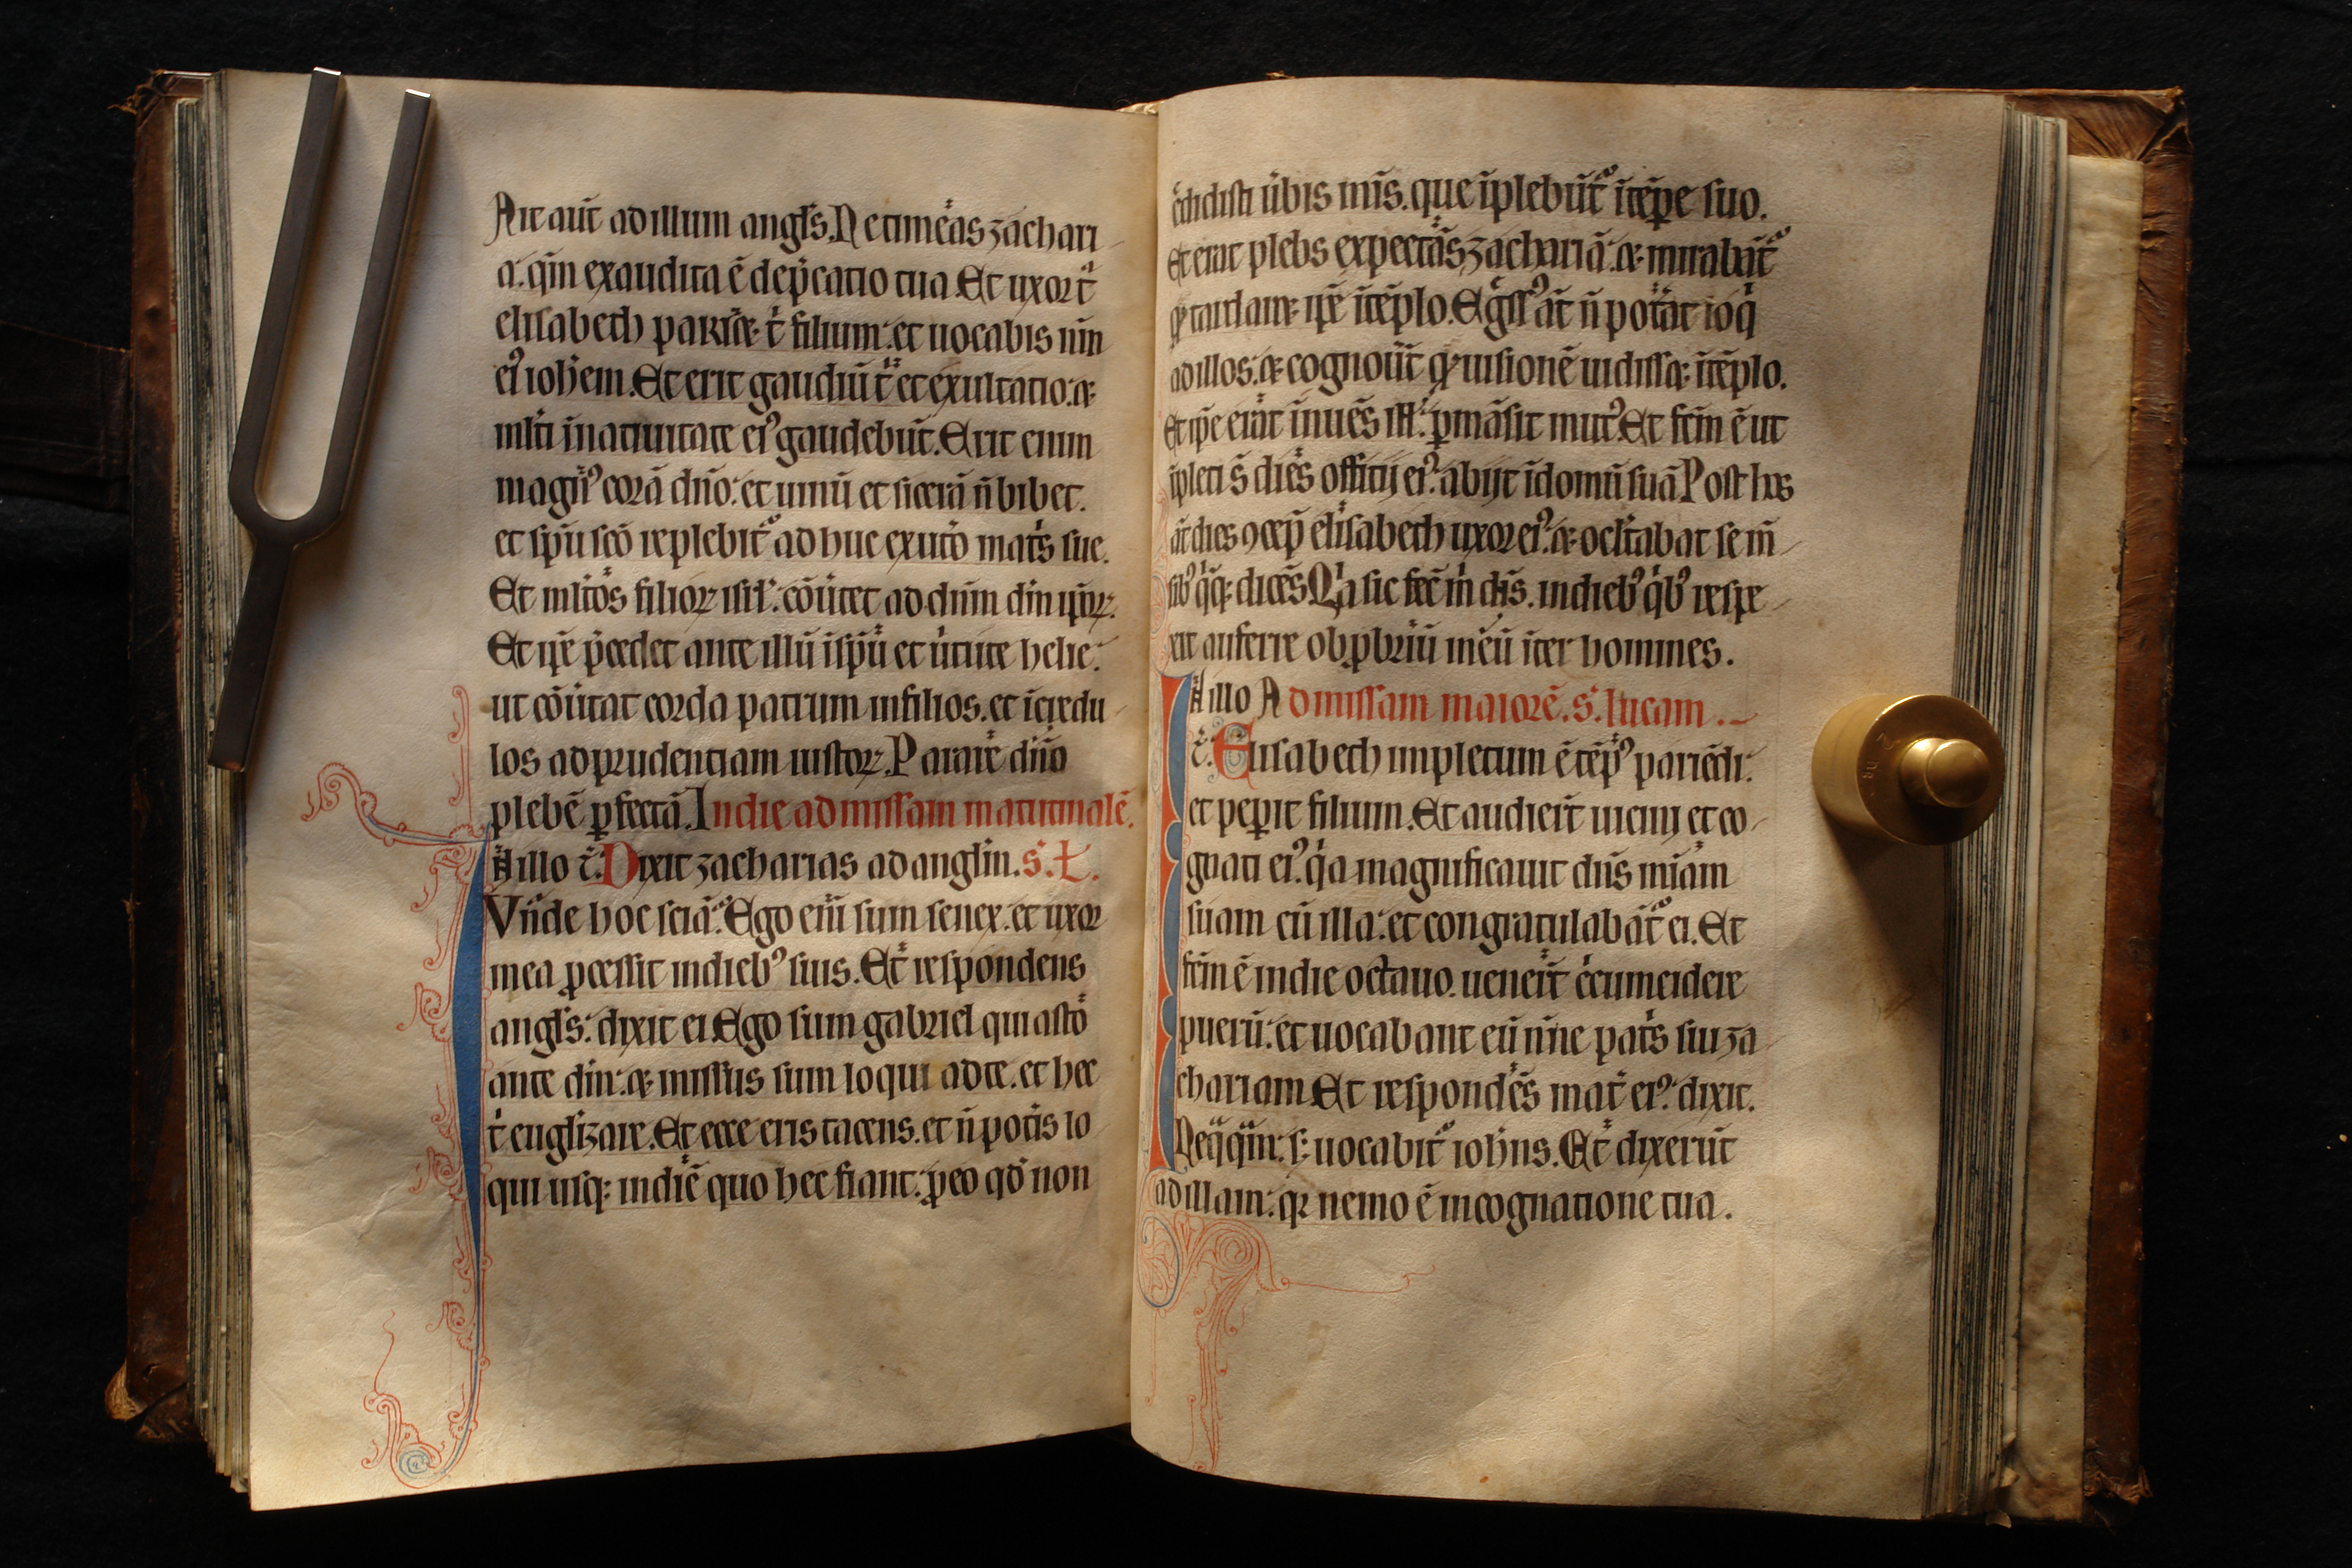 Ait aut̄ ad illum angl̄s. Ne timeas zachari
a. qm̄ exaudita ē dep̄catio tua Et uxor t̄
elisabeth pariet t̄ filium. et uocabis nm̄
ei9 ioh̄em. Et erit gaudiū t̄ et exultatio. et
ml̄ti ī natiuitate ei9 gaudebūt. Erit enim
magn9 corā dn̄o. et uinū et sicerā n̄ bibet.
et sp̄u sc̄o replebit᷑ ad huc ex ut̄o mat̄s sue.
Et ml̄tos filioꝝ isr̄l. cōūtet ad dūm dm̄ ip̄oꝝ.
Et ip̄e p̄cedet ante illū ī sp̄ū et ūtute helie.
ut cōūtat corda patrum in filios. et īcredu
los ad prudentiam iustoꝝ. Parare dn̄o
plebē ꝑfectā. In die ad missam matutinalē.
In illo t̄. Dixit zacharias ad angl̄m. s. L.
Vn̄de hoc sciā. Ego eni̅ sum senex. et uxor
mea ꝓcessit in dieb9 suis. Et respondens
angl̄s. dixit ei Ego sum gabriel qui asto
ante dm̄. et missus sum loqui ad te. et hec
t̄ euglizare. Et ecce eris tacens. et n̄ pot̄is lo
qui usqꝫ in diē quo hec fiant. ꝓ eo qd̄ non
c̄didisti ūbis mīs. que īplebūt᷑ ī tēꝑe suo.
Et erat plebs expectās zachariā. et mirabāt᷑
qꝫ tardaret ip̄e ī tēplo. Eḡss9 āt n̄ pot̄at loq̄
ad illos. et cognoūt qꝫ uisionē uidisset ī tēplo.
Et ip̄e erāt īnuēs ill̄. ꝑmāsit mut9. Et fcm̄ ē ut
īpleti s̄ dies officij ei9. abijt ī domū suā Post hos
āt dies ꝯcep̄ elisabeth uxor ei9. et occltabat se m̄
sib9 q̄qꝫ dicēs Qa sic fec̄ m̄ dn̄s. in dieb9 qb9 respe
xit auferre obꝓbriū meū īter homines.
In illo Ad missam maiorē. s. lucam.
t̄. Elisabeth impletum ē tēp9 pariēdi.
et peꝑit filium. Et audier̄t uicini et co
gnati ei9. qa magnificauit dn̄s mīam
suam cū illa. et congratulabāt᷑ ei. Et
fcm̄ ē in die octauo. uener̄t c̄cumcidere
puerū. et uocabant eū nīne pat̄s sui za
chariam. Et respondēs mat̄ ei9. dixit.
Neq̄qm̄. sꝫ uocabit᷑ ioh̄ns. Et dixerūt
ad illam. qꝛ nemo ē in cognatione tua.